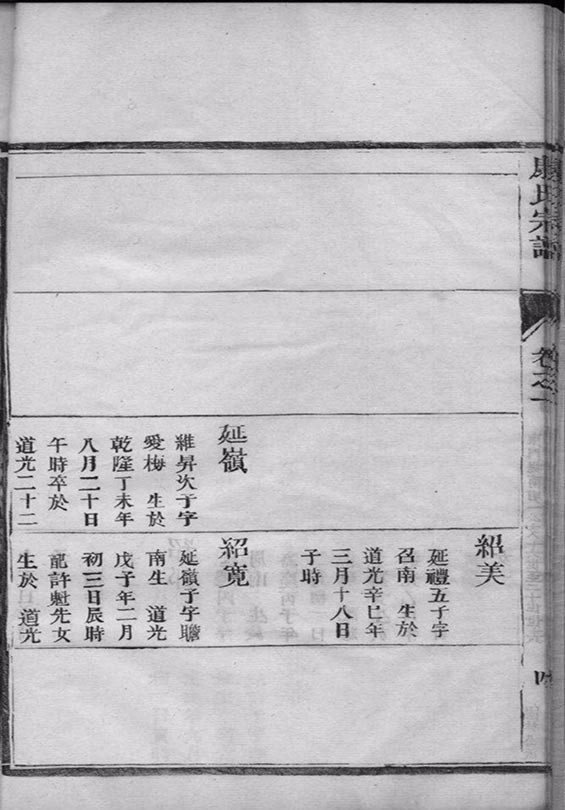 氏宗譜
卷之一
延嶺
維昇次子字
愛梅 生於
乾隆丁未年
八月二十日
午時卒於
道光二十二
紹美
延禮五子字
召南 生於
道光辛巳年
三月十八日
子時
紹寬
延嶺子字瞻
南生 道光
戊子年二月
初三日辰時
配許魁先女
生於 道光